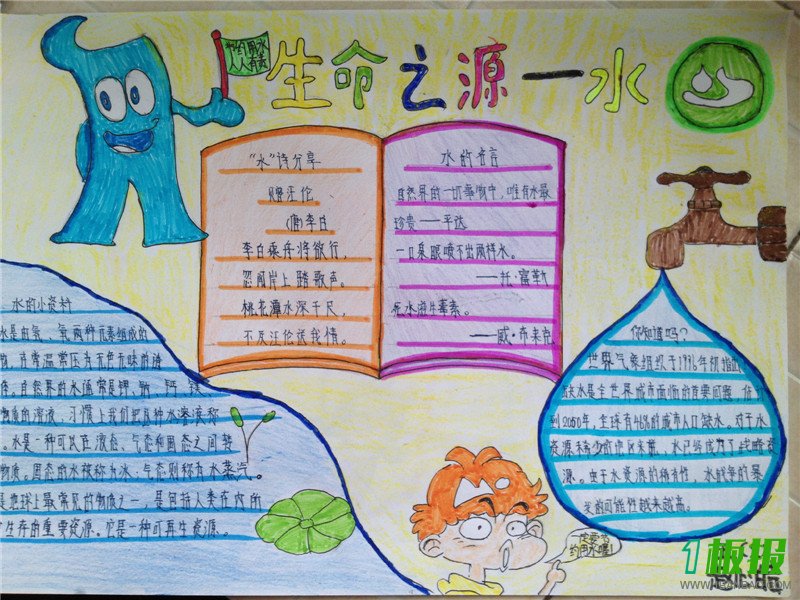 节约用水
人人有责
生命之源一水
"水"诗分享
赠汪伦
(唐)李白
李白乘舟将欲行，
忽闻岸上踏歌声。
桃花潭水深千尺，
不及汪伦送我情。
水的名言
自然界的一切事物中，唯有水最
珍贵——平达
一口泉眼喷不出两样水。
——托·富勒
死水滋生毒素。
——威·布莱克
水的小资料
水是由氢、氧两种元素组成的
物，在常温常压为无色无味的透
体。自然界的水通常是钾、钠、钙、镁
物质的溶液，习惯上我们把各种水溶液称
。水是一种可以在液态、气态和固态之间转
物质。固态的水被称为冰，气态则称为水蒸气。
是地球上最常见的物质之一，是包括人类在内所
生存的重要资源。它是一种可再生资源。
你知道吗？
世界气象组织于1996年初指出
缺水是全世界城市面临的首要问题，估计
到2050年，全球有46%的城市人口缺水。对于水
资源稀少的地区来讲，水已经成为了战略资
源。由于水资源的稀有性，水战争的暴
发的可能性越来越高。
一定要节
约用水喔！
1板报